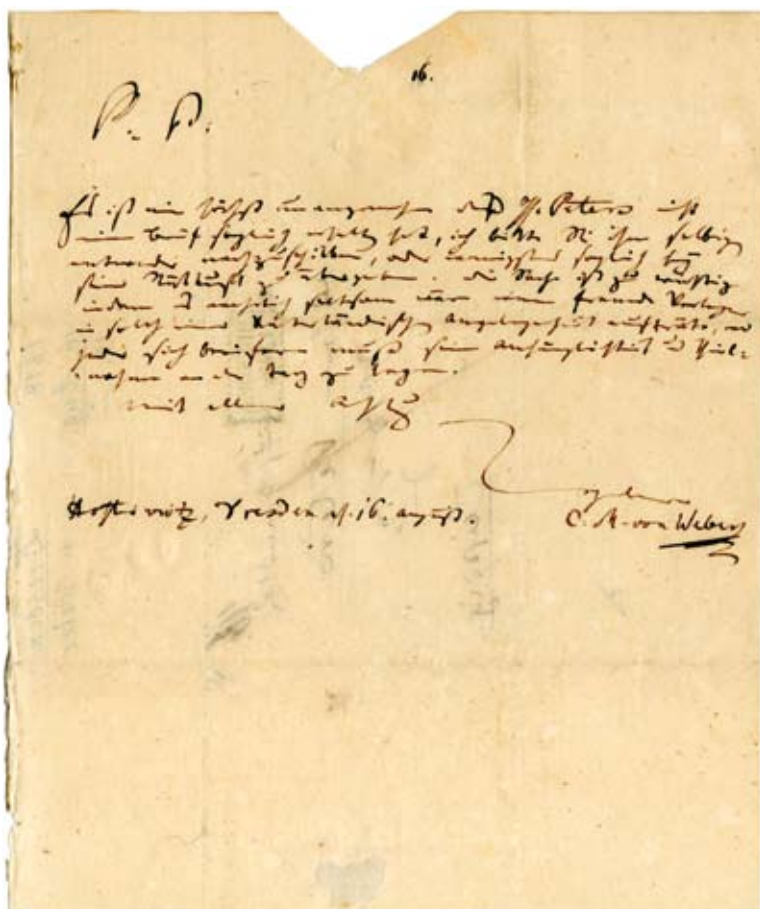 16.
P. P.
Es ist mir höchst unangenehm daß H. Peters nicht
meinen Brief sogleich erhalten hat, ich bitte Sie ihm selbigen
entweder nachzuschikken, oder wenigstens sogleich bey
seiner Rükkunft zu übergeben. die Sache ist zu wichtig
indem es wahrlich seltsam wäre wenn fremde Verleger
in solch einer Vaterländischen Angelegenheit aufträte, wo
jeder sich beeifern muß seine Anhänglichkeit u Theil-
nahme an den Tag zu legen.
mit aller Achtung
Ergebener
Hosterwitz, Dresden d. 16. August.
C. M. von Weber